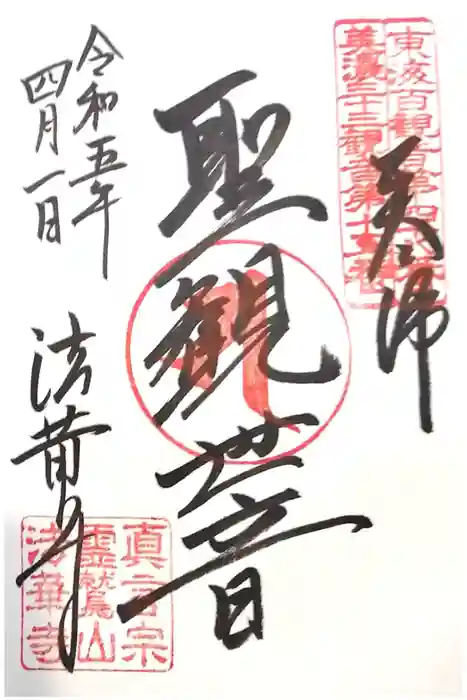 奉拝
東海百観音第四十八番
美濃三十三観音第十五番
聖観世音
令和五年
四月一日
法華寺
真言宗
霊鷲山
法華寺